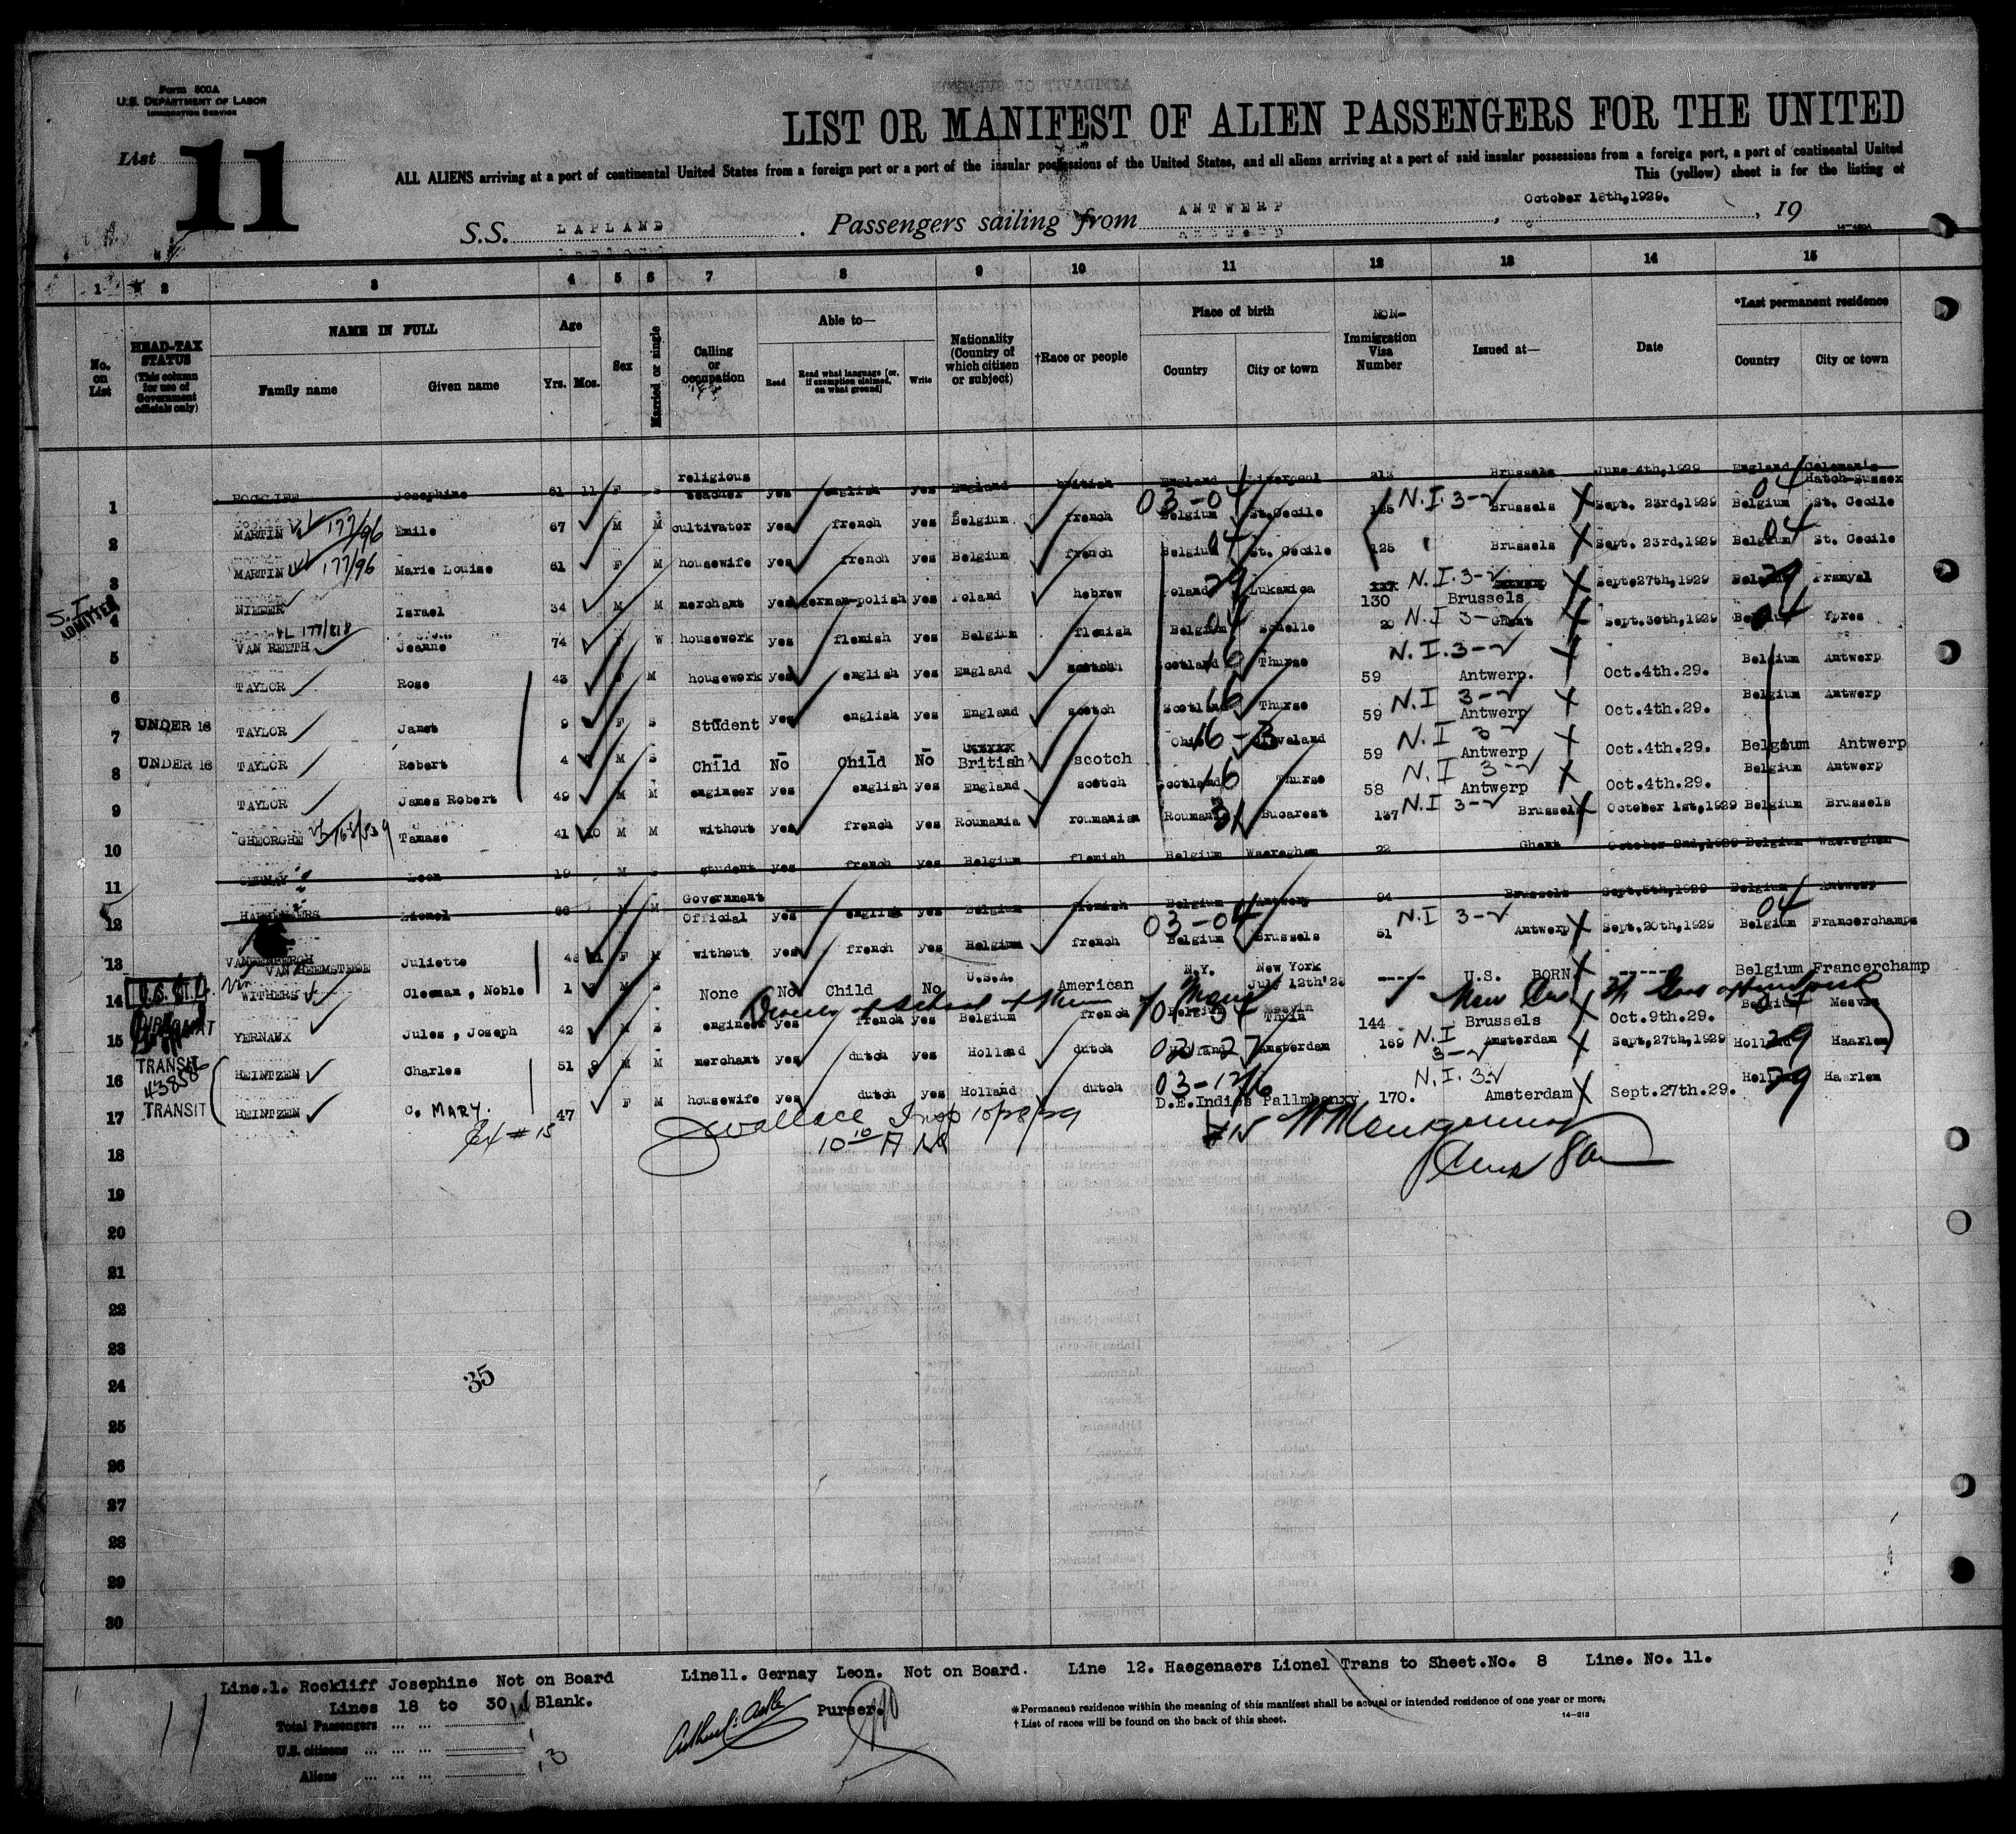 Form 500A
U.S. DEPARTMENT OF LABOR
IMMIGRATION SERVICE
List 11
LIST OR MANIFEST OF ALIEN PASSENGERS FOR THE UNITED
ALL ALIENS arriving at a port of continental United States from a foreign port or a port of the insular possessions of the United States, and all aliens arriving at a port of said insular possessions from a foreign port, a port of continental United
This (yellow) sheet is for the listing of
S.S. LAPLAND . Passengers sailing from ANTWERP , October 18th, 1929. , 19
1 2 3 4 5 6 7 8 9 10 11 12 13 14 15
No. on List
HEAD-TAX STATUS (This column for use of Government officials only)
NAME IN FULL
Family name Given name
Age
Yrs. Mos.
Sex
Married or single
Calling or occupation
Able to—
Read Read what language [or, if exemption claimed, on what ground] Write
Nationality (Country of which citizen or subject)
†Race or people
Place of birth
Country City or town
NON-
Immigration Visa Number
Issued at—
Date
*Last permanent residence
Country City or town
1 ROCKLIFF Josephine 61 11 F S religious teacher yes english yes England british England Liverpool 213 Brussels June 4th,1929 England Coleman's Hatch-Sussex
2 MARTIN 177/96 Emile 67 M M cultivator yes french yes Belgium french 03-04 Belgium St.Cecile 125 N.I 3- Brussels Sept. 23rd,1929 Belgium 04 St. Cecile
3 MARTIN 177/96 Marie Louise 61 F M housewife yes french yes Belgium french Belgium 04 St. Cecile 125 Brussels Sept. 23rd,1929 Belgium 04 St. Cecile
S.I. ADMITTED
4 NIEDER Israel 34 M M merchant yes german-polish yes Poland hebrew Poland 29 Lukawica 130 N.I.3- Brussels Sept.27th,1929 29 Przmysl
5 VAN REETH 177/818 Jeanne 74 F W housework yes flemish yes Belgium flemish Belgium 04 Schelle 20 N.I 3- Ghent Sept.30th,1929 Belgium 04 Ypres
6 TAYLOR Rose 43 F M housework yes english yes England scotch Scotland 16 Thurso 59 N.I.3- Antwerp. Oct.4th.29. Belgium Antwerp
7 UNDER 16 TAYLOR Janet 9 F S Student yes english yes England scotch Scotland 16 Thurso 59 N.I 3- Antwerp Oct.4th.29. Belgium Antwerp
8 UNDER 16 TAYLOR Robert 4 M S Child No Child No British scotch Ohio 16-3 Cleveland 59 N.I 3- Antwerp Oct.4th.29. Belgium Antwerp
9 TAYLOR James Robert 49 M M engineer yes english yes England scotch Scotland 16 Thurso 58 N.I 3- Antwerp Oct.4th.29. Belgium Antwerp
10 GHEORGHE Tanase 41 10 M M without yes french yes Roumania roumanian Roumania 31 Bucarest 137 N.I 3- Brussels October 1st,1929 Belgium Brussels
11 GERNAY Leon 19 M S student yes french yes Belgium flemish Belgium Waereghem 22 Ghent October 2nd,1929 Belgium Waereghem
12 HAEGENAERS Lionel 66 M M Government Official yes english yes Belgium flemish Belgium Antwerp 94 Brussels Sept.5th,1929 Belgium Antwerp
13 VANDENBERGH VAN HEEMSTEDE Juliette F M without yes french yes Belgium french 03-04 Belgium Brussels 51 N.I 3- Antwerp Sept.20th,1929 Belgium 04 Francorchamps
14 WITHERS Cleman , Noble 1 M S None No Child No U.S.A. American N.Y. New York July 12th'28 ----- U.S. BORN ------ Belgium Francorchamp
15 DIPLOMAT YERNAUX Jules , Joseph 42 M S engineer yes french yes Belgium french Belgium Thuin 144 Brussels Oct.9th.29. Belgium
16 TRANSIT 43858 HEINTZEN Charles 51 9 M M merchant yes dutch yes Holland dutch Holland Amsterdam 169 N.I 3- Amsterdam Sept,27th,1929 Holland 29 Haarlem
17 TRANSIT HEINTZEN C. MARY. 47 F M housewife yes dutch yes Holland dutch 03-12 D.E.Indies 170. N.I.3 Amsterdam Sept.27th.29. Holland 29 Haarlem
Ex # 15 JWallace Insp 10/28/29
10 10 A
#15
18
19
20
21
22
23
24
25
26
27
28
29
30
35
Line.1. Rockliff Josephine Not on Board Line11. Gernay Leon. Not on Board. Line 12. Haegenaers Lionel Trans to Sheet.No. 8 Line. No. 11.
Lines 18 to 30 Blank.
Purser.
Total Passengers ... ...
U.S. citizens ... ... ...
Aliens ... ... ...
*Permanent residence within the meaning of this manifest shall be actual or intended residence of one year or more.
† List of races will be found on the back of this sheet.
14—213